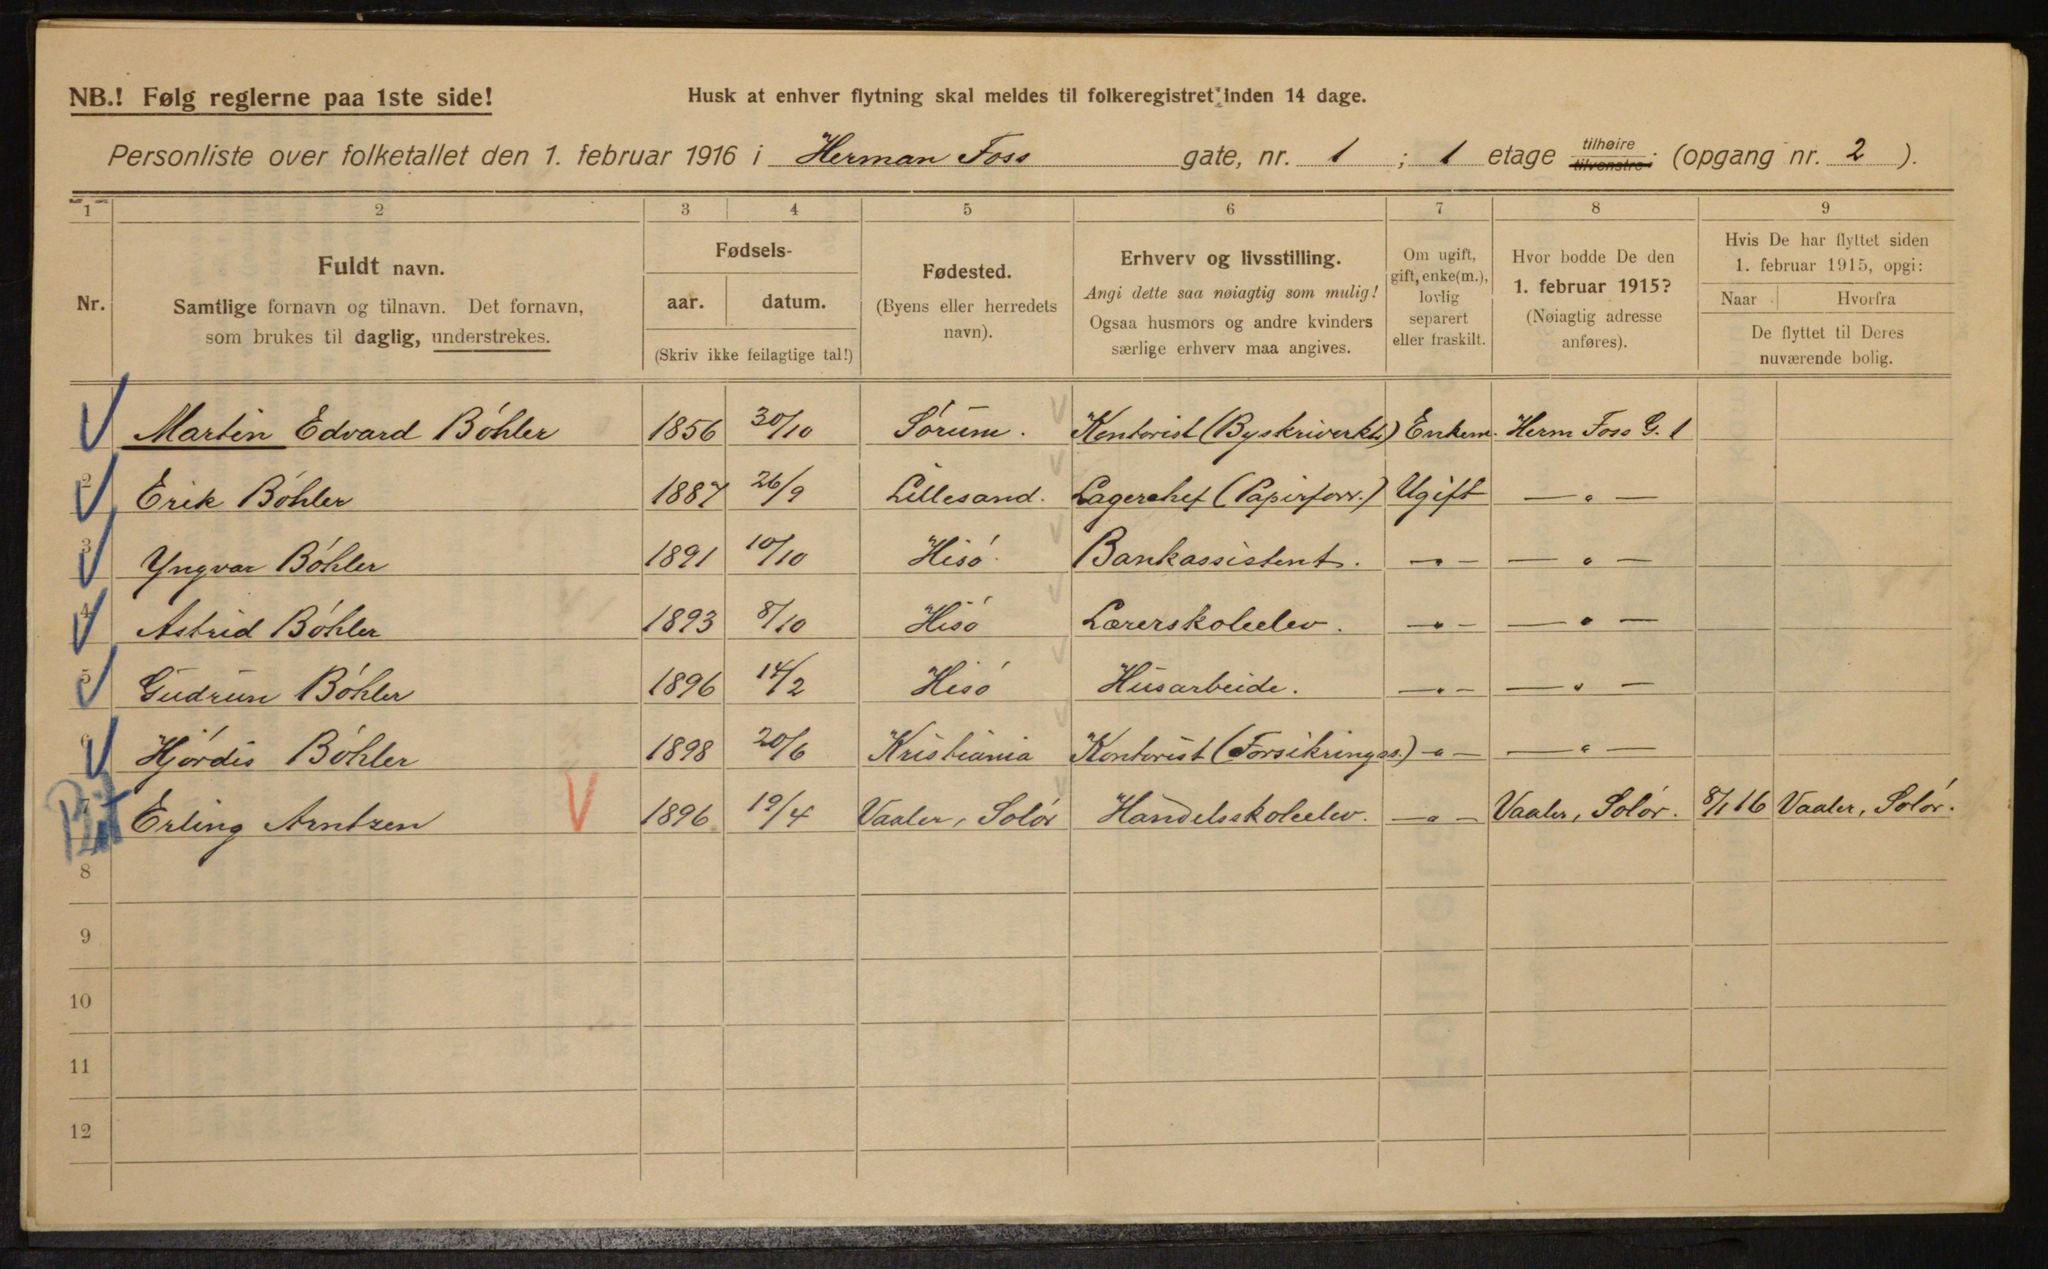 NB.! Følg reglerne paa 1ste side!
Husk at enhver flytning skal meldes til folkeregistret inden 14 dage.
Personliste over folketallet den 1. februar 1916 i Herman Foss gate, nr. 1 ; 1 etage tilhøire tilvenstre (opgang nr. 2 ).
1 2 3 4 5 6 7 8 9
Nr.
Fuldt navn.
Samtlige fornavn og tilnavn. Det fornavn,
som brukes til daglig, understrekes.
Fødsels-
aar. datum.
(Skriv ikke feilagtige tal!)
Fødested.
(Byens eller herredets
navn).
Erhverv og livsstilling.
Angi dette saa nøiagtig som mulig!
Ogsaa husmors og andre kvinders
særlige erhverv maa angives.
Om ugift,
gift, enke(m.),
lovlig
separert
eller fraskilt.
Hvor bodde De den
1. februar 1915?
(Nøiagtig adresse
anføres).
Hvis De har flyttet siden
1. februar 1915, opgi:
Naar Hvorfra
De flyttet til Deres
nuværende bolig.
Martin Edvard Böhler 1856 30/10 Sörum. Kontorist (Byskriverkts) Enkem. Herm Foss G. 1
2 Erik Böhler 1887 26/9 Lillesand. Lagerchef (Papirforr.) Ugift — " —
3 Yngvar Böhler 1891 10/10 Hisö. Bankassistent. — " — — " —
4 Astrid Böhler 1893 8/10 Hisö Lærerskoleelev. — " — — " —
5 Gudrun Böhler 1896 14/2 Hisö Husarbeide. — " — — " —
6 Hjördis Böhler 1898 20/6 Kristiania Kontorist (Forsikringss.) — " — — " —
7 Erling Arntzen 1896 19/4 Vaaler, Solör Handelsskoleelev. — " — Vaaler, Solör. 8/1 16 Vaaler, Solör.
8
9
10
11
12